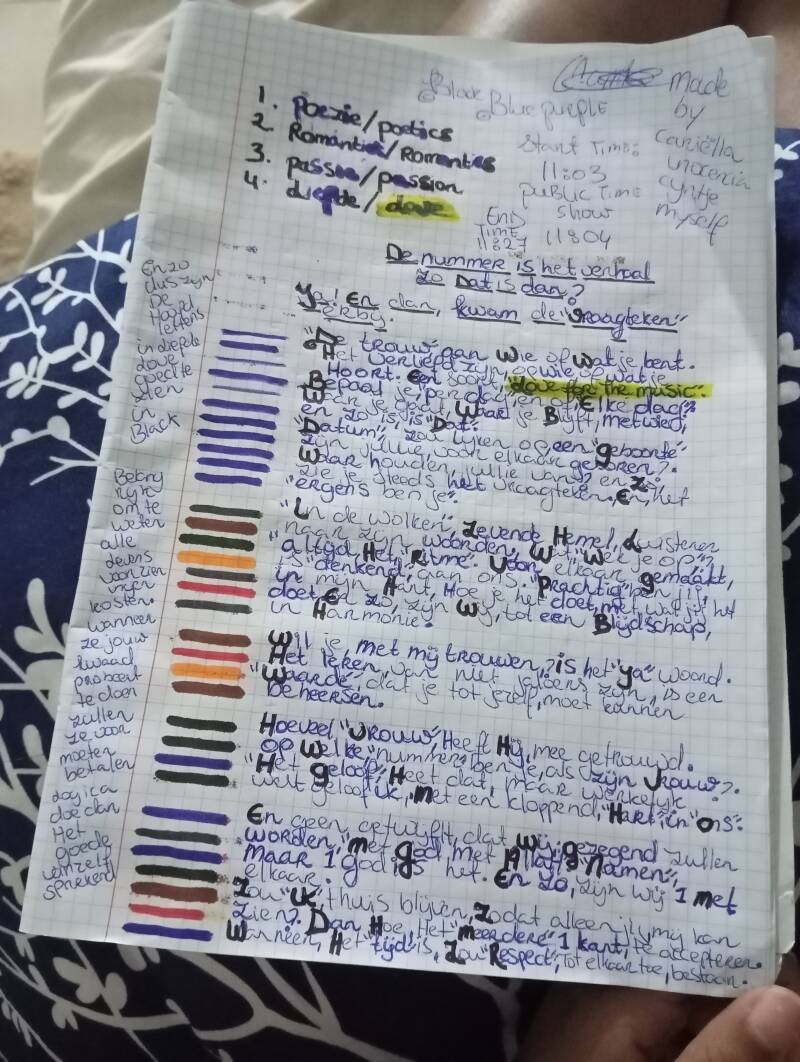 Black Blue purple
Made
by
cariëlla
myself
1. Poëzie/poetics
2. Romantics/Romantics
3. passie/passion
4. diepte/dove
Start Time:
11:03
public Time
show
11804
End
Time
11:27
De nummer is het verhaal
Zo Dat is dan?
Ja! En dan, kwam de "vraagteken"
En zo
dus zijn
De
Hoofd
letters
in diepte
dove
in
Black
"De trouw" aan wie of wat je bent.
Het verliefd zijn, op wie of wat je
Hoort. Een soort, "dove for the music".
Bepaal je, per dag, en, elke dag?
en zo, is "Dat"
"Datum", zou lijken op, een "geboorte"
zijn jullie voor elkaar geboren?
Waar houden, jullie van? en zo
zie je steeds het vraagteken, En, het
"ergens ben je".
Belang
rijk
om te
weten
alle
levens
voorzien
kosten.
wanneer
ze jouw
kwaad
probeert
te doen
zullen
ze voor
moeten
betalen
doe dan
Het
goede
vanzelf
sprekend
"In de wolken", zevende Hemel, Luisteren
naar zijn woorden, Wat, wek je op?
altijd, Het "Ritme" voor, elkaar gemaakt,
is "denkend", aan ons. "Prachtig" ben jij,
in mijn Hart, Hoe je het doet, met wat jij het
doet, En zo, zijn wij, tot een Blijdschap,
in Harmonie.
Wil je, met mij trouwen, ? is het "ja" woord.
Het leken, van niet jaloers zijn, is een
"Waarde", dat je tot jezelf, moet kunnen
beheersen.
Hoeveel, "vrouw", Heeft Hij, mee getrouwd.
op welke "nummer", ben je, als zijn vrouw?.
"Het geloof", Heet dat, maar werkelijk
wat geloof ik, met een kloppend, "Hart" in "ons".
En geen, getwijfelt, dat wij gezegend zullen
worden, met god, met Allah, "Namen",
maar 1 god is het. En zo, zijn wij 1 met
elkaar.
Zou "ik", thuis blijven, zodat alleen jij mij kan
zien? Dan Hoe, Het "meerdere" 1 kant, te accepteren.
Wanneer, Het tijd is, zou "Respect", tot elkaar toe, bestaan.